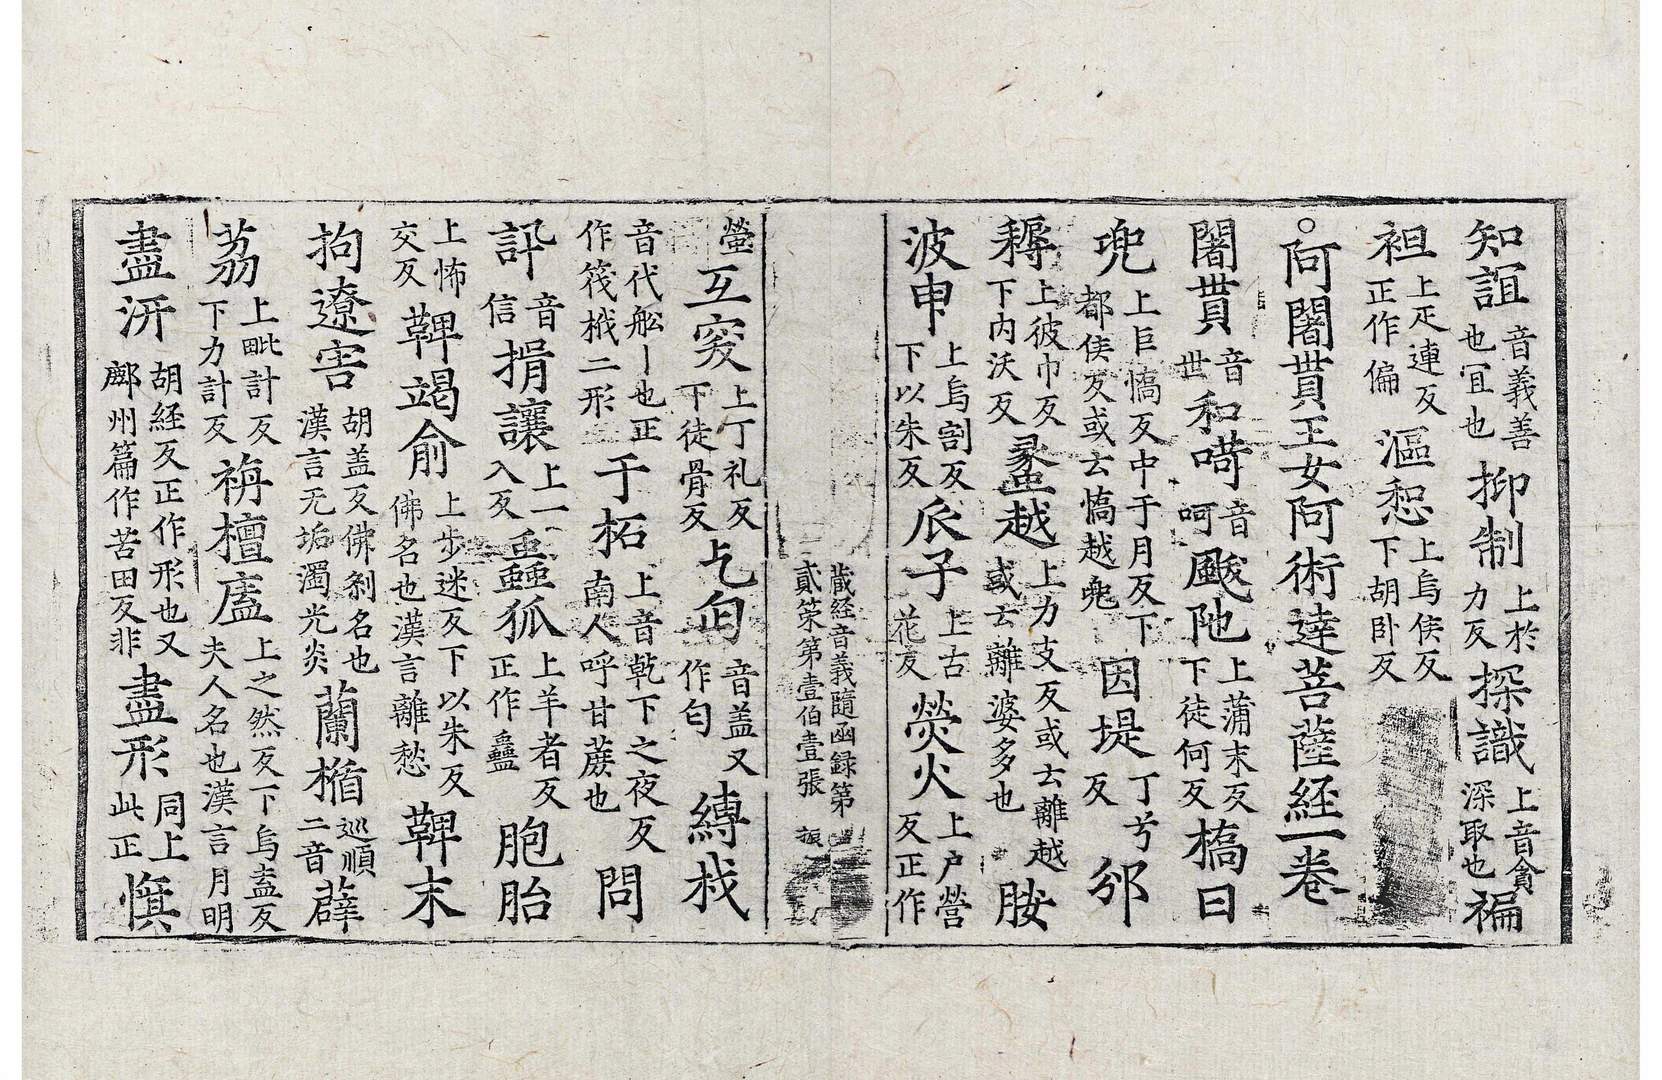 知誼音義善也冝也抑制上於力反探識上音貪深取也褊
袒上疋連反正作偏漚惒上烏侯反下胡卧反
○阿闍貰王女阿術達菩薩経一卷
闍貰音世和嗬音呵颰陁上蒲末反下徒何反橋曰
兜上巨憍反中于月反下都侯反或云憍越兠因堤丁兮反邠
耨上彼巾反下内沃反蠡越上力支反或云離越或云離婆多也胺
波申上烏割反下以朱反㼌子上古花反熒火上户營反正作
藏経音義隨函録第貳筞第壹伯壹張 振
螢互突上丁礼反下徒骨反乞匃音盖又作匄縛栰
音代舩丨也正作筏橃二形于柘上音乹下之夜反南人呼甘蔗也問
訊音信揖讓上一入反蠱狐上羊者反正作蠱胞胎
上怖交反鞞竭俞上步迷反下以朱反佛名也漢言離愁鞞末
拘遼害胡盖反佛刹名也漢言无垢濁光炎蘭楯巡順二音薜
荔上毗計反下力計反栴檀廅上之然反下烏盍反夫人名也漢言月明
盡汧胡経反正作形也又鄜州篇作苦田反非盡形同上此正慎